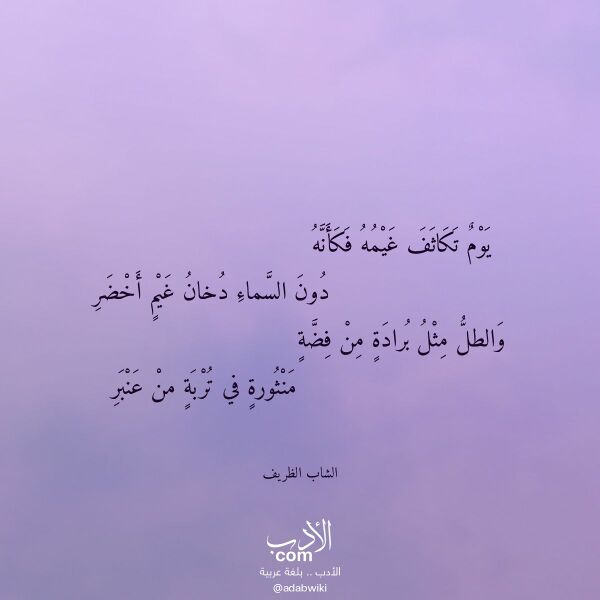 يَوْمٌ تَكَاثَفَ غَيْمُهُ فَكَأَنَّهُ
دُونَ السَّماءِ دُخانُ غَيْمٍ أَخْضَرِ
وَالطلُّ مِثْلُ بُرادَةٍ مِنْ فِضَّةٍ
مَنْثُورةٍ في تُرْبَةٍ منْ عَنْبَرِ
الشاب الظريف
الأدب
com
الأدب .. بلغة عربية
@adabwiki